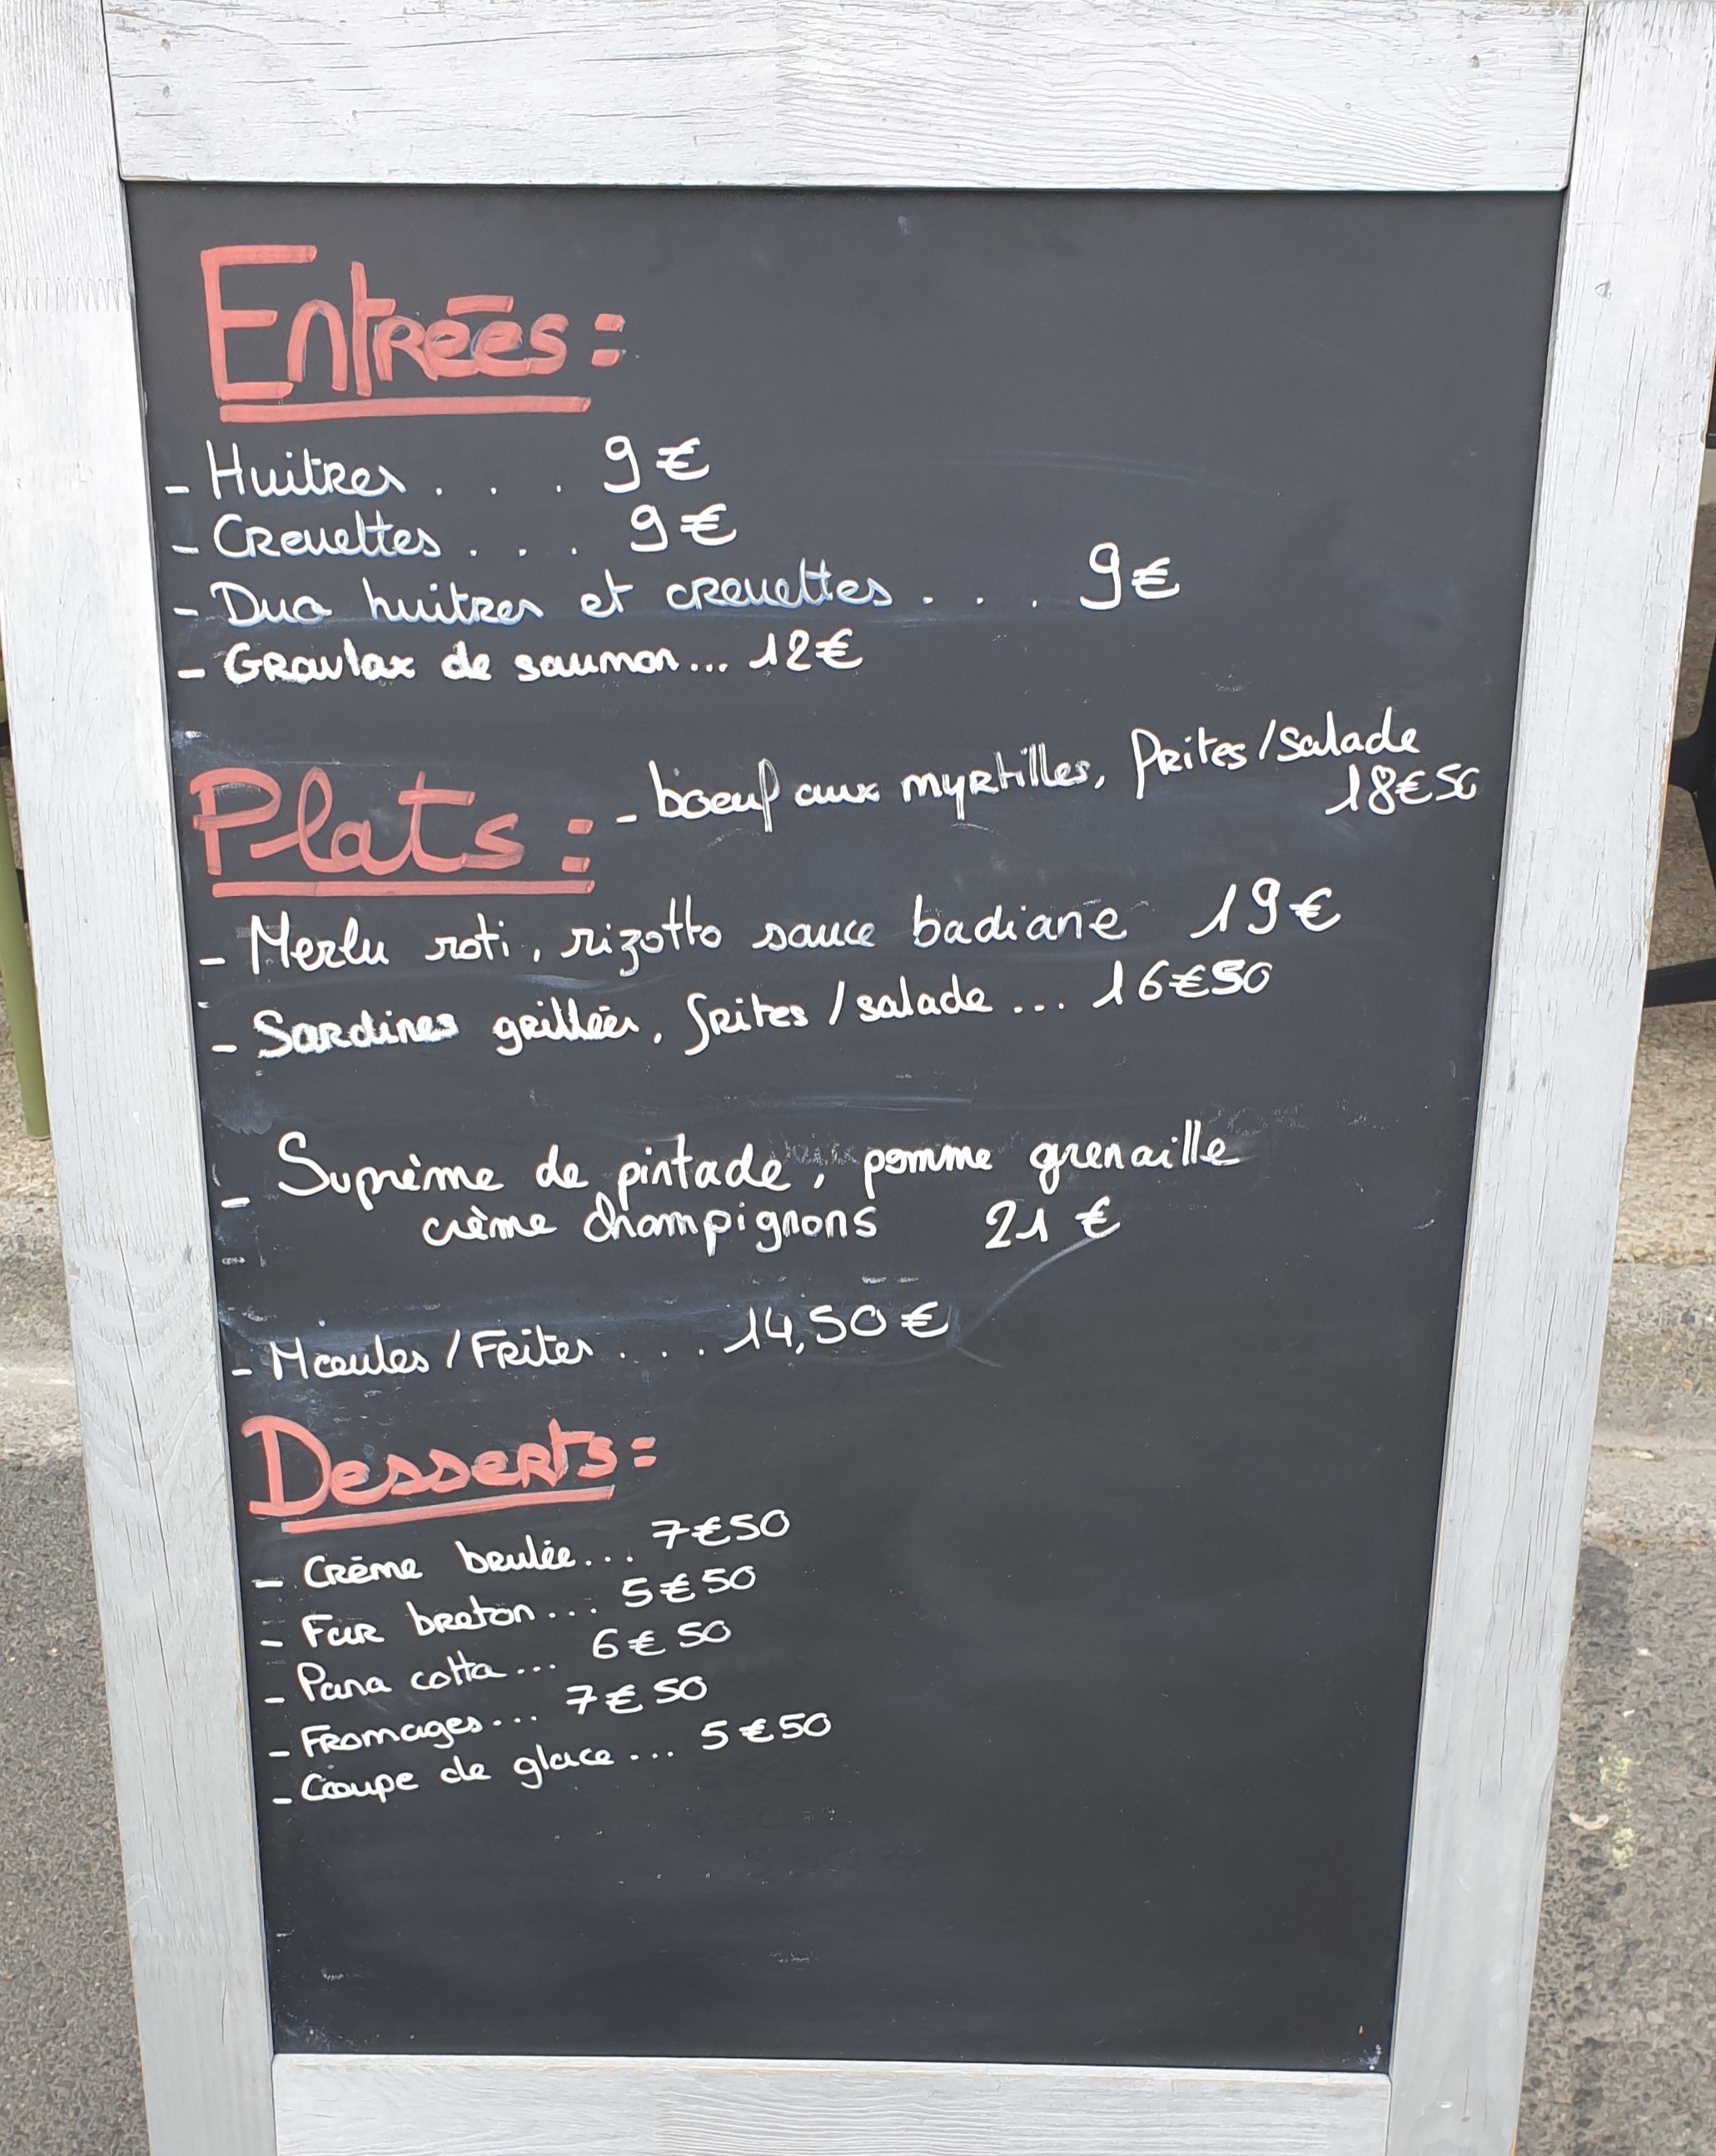 Entrées :
- Huitres . . . 9 €
- Crevettes . . . 9 €
- Duo huitres et crevettes . . . 9 €
- Gravlax de saumon... 12 €
Plats : - boeuf aux myrtilles, frites / salade
18 € 50
- Merlu roti, rizotto sauce badiane 19 €
- Sardines grillées, frites / salade ... 16 € 50
- Suprème de pintade, pomme grenaille
crème champignons 21 €
- Moules / Frites . . . 14,50 €
Desserts :
- Crème brulée... 7 € 50
- Far breton... 5 € 50
- Pana cotta ... 6 € 50
- Fromages... 7 € 50
- Coupe de glace ... 5 € 50